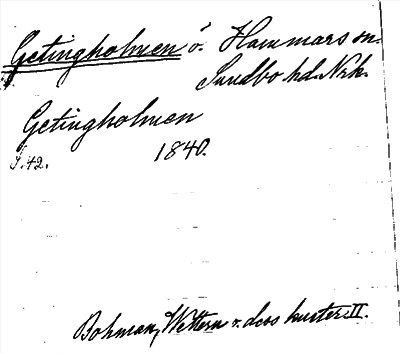 Getingholmen ö. Hammars sn.
Sundbo hd. Nrk.
Getingholmen
S. 42. 1840.
Bohman, Wettern o. dess kuster. II.